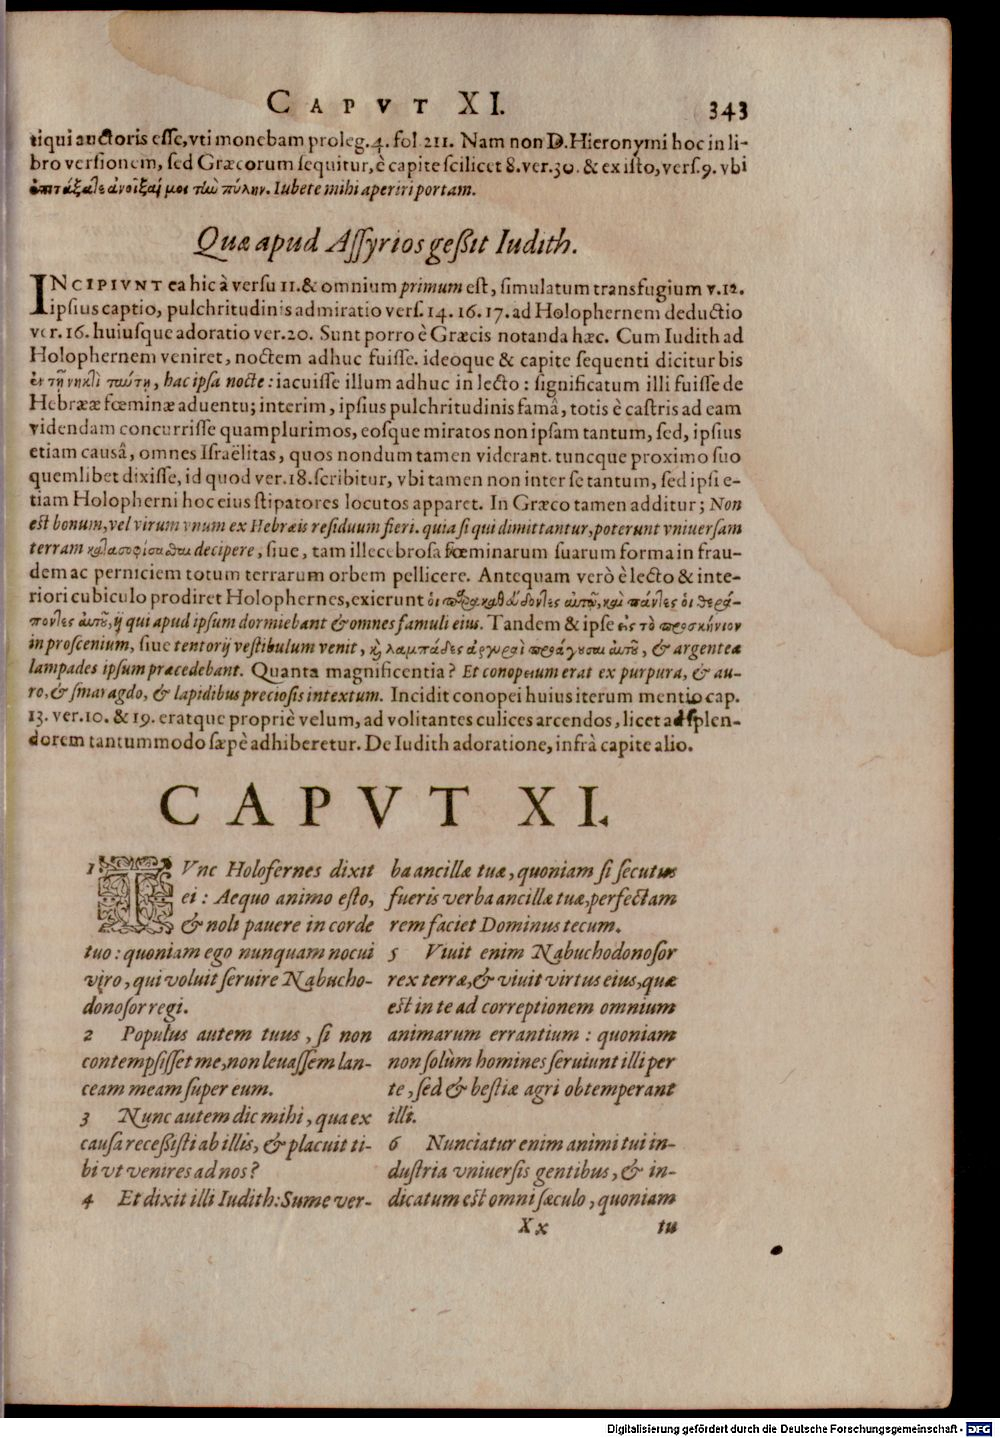 CAPVT XI.
343
tiqui auctoris esse, vti monebam proleg. 4. fol 211. Nam non D. Hieronymi hoc in li-
bro versionem, sed Græcorum sequitur, è capite scilicet 8. ver. 30. & ex isto, vers. 9. vbi
ἐπιτάξατε ἀνοῖξαί μοι τὼ πύλην. Iubete mihi aperiri portam.
Quæ apud Assyrios geßit Iudith.
INCIPIVNT ea hic à versu 11. & omnium primum est, simulatum transfugium v. 12.
ipsius captio, pulchritudinis admiratio vers. 14. 16. 17. ad Holophernem deductio
ver. 16. huiusque adoratio ver. 20. Sunt porro è Græcis notanda hæc. Cum Iudith ad
Holophernem veniret, noctem adhuc fuisse. ideoque & capite sequenti dicitur bis
ἐν τῇ νηκτὶ ταύτῃ, hac ipsa nocte: iacuisse illum adhuc in lecto: significatum illi fuisse de
Hebrææ fœminæ aduentu; interim, ipsius pulchritudinis famâ, totis è castris ad eam
videndam concurrisse quamplurimos, eosque miratos non ipsam tantum, sed, ipsius
etiam causâ, omnes Israëlitas, quos nondum tamen viderant. tuncque proximo suo
quemlibet dixisse, id quod ver. 18. scribitur, vbi tamen non inter se tantum, sed ipsi e-
tiam Holopherni hoc eius stipatores locutos apparet. In Græco tamen additur; Non
est bonum, vel virum vnum ex Hebræis residuum fieri. quia si qui dimittantur, poterunt vniuersam
terram κατασοφίσασθαι decipere, siue, tam illecebrosa fœminarum suarum forma in frau-
dem ac perniciem totum terrarum orbem pellicere. Antequam verò è lecto & inte-
riori cubiculo prodiret Holophernes, exierunt οἱ παρακαθεύδοντες αὐτῷ, καὶ πάντες οἱ θερά-
ποντες αὐτοῦ, ij qui apud ipsum dormiebant & omnes famuli eius. Tandem & ipse εἰς τὸ προσκήνιον
in proscenium, siue tentorij vestibulum venit, καὶ λαμπάδες ἀργυραὶ προάγουσαι αὐτοῦ, & argenteæ
lampades ipsum præcedebant. Quanta magnificentia? Et conopeum erat ex purpura, & au-
ro, & smaragdo, & lapidibus preciosis intextum. Incidit conopei huius iterum mentio cap.
13. ver. 10. & 19. eratque propriè velum, ad volitantes culices arcendos, licet ad splen-
dorem tantummodo sæpè adhiberetur. De Iudith adoratione, infrà capite alio.
CAPVT XI.
1 TVnc Holofernes dixit
ei: Aequo animo esto,
& noli pauere in corde
tuo: quoniam ego nunquam nocui
viro, qui voluit seruire Nabucho-
donosor regi.
2 Populus autem tuus, si non
contempsisset me, non leuassem lan-
ceam meam super eum.
3 Nunc autem dic mihi, qua ex
causa receßisti ab illis, & placuit ti-
bi vt venires ad nos?
4 Et dixit illi Iudith: Sume ver-
ba ancillæ tuæ, quoniam si secutus
fueris verba ancillæ tuæ, perfectam
rem faciet Dominus tecum.
5 Viuit enim Nabuchodonosor
rex terræ, & viuit virtus eius, quæ
est in te ad correptionem omnium
animarum errantium: quoniam
non solùm homines seruiunt illi per
te, sed & bestiæ agri obtemperant
illi.
6 Nunciatur enim animi tui in-
dustria vniuersis gentibus, & in-
dicatum est omni sæculo, quoniam
Xx
tu
Digitalisierung gefördert durch die Deutsche Forschungsgemeinschaft - DFG